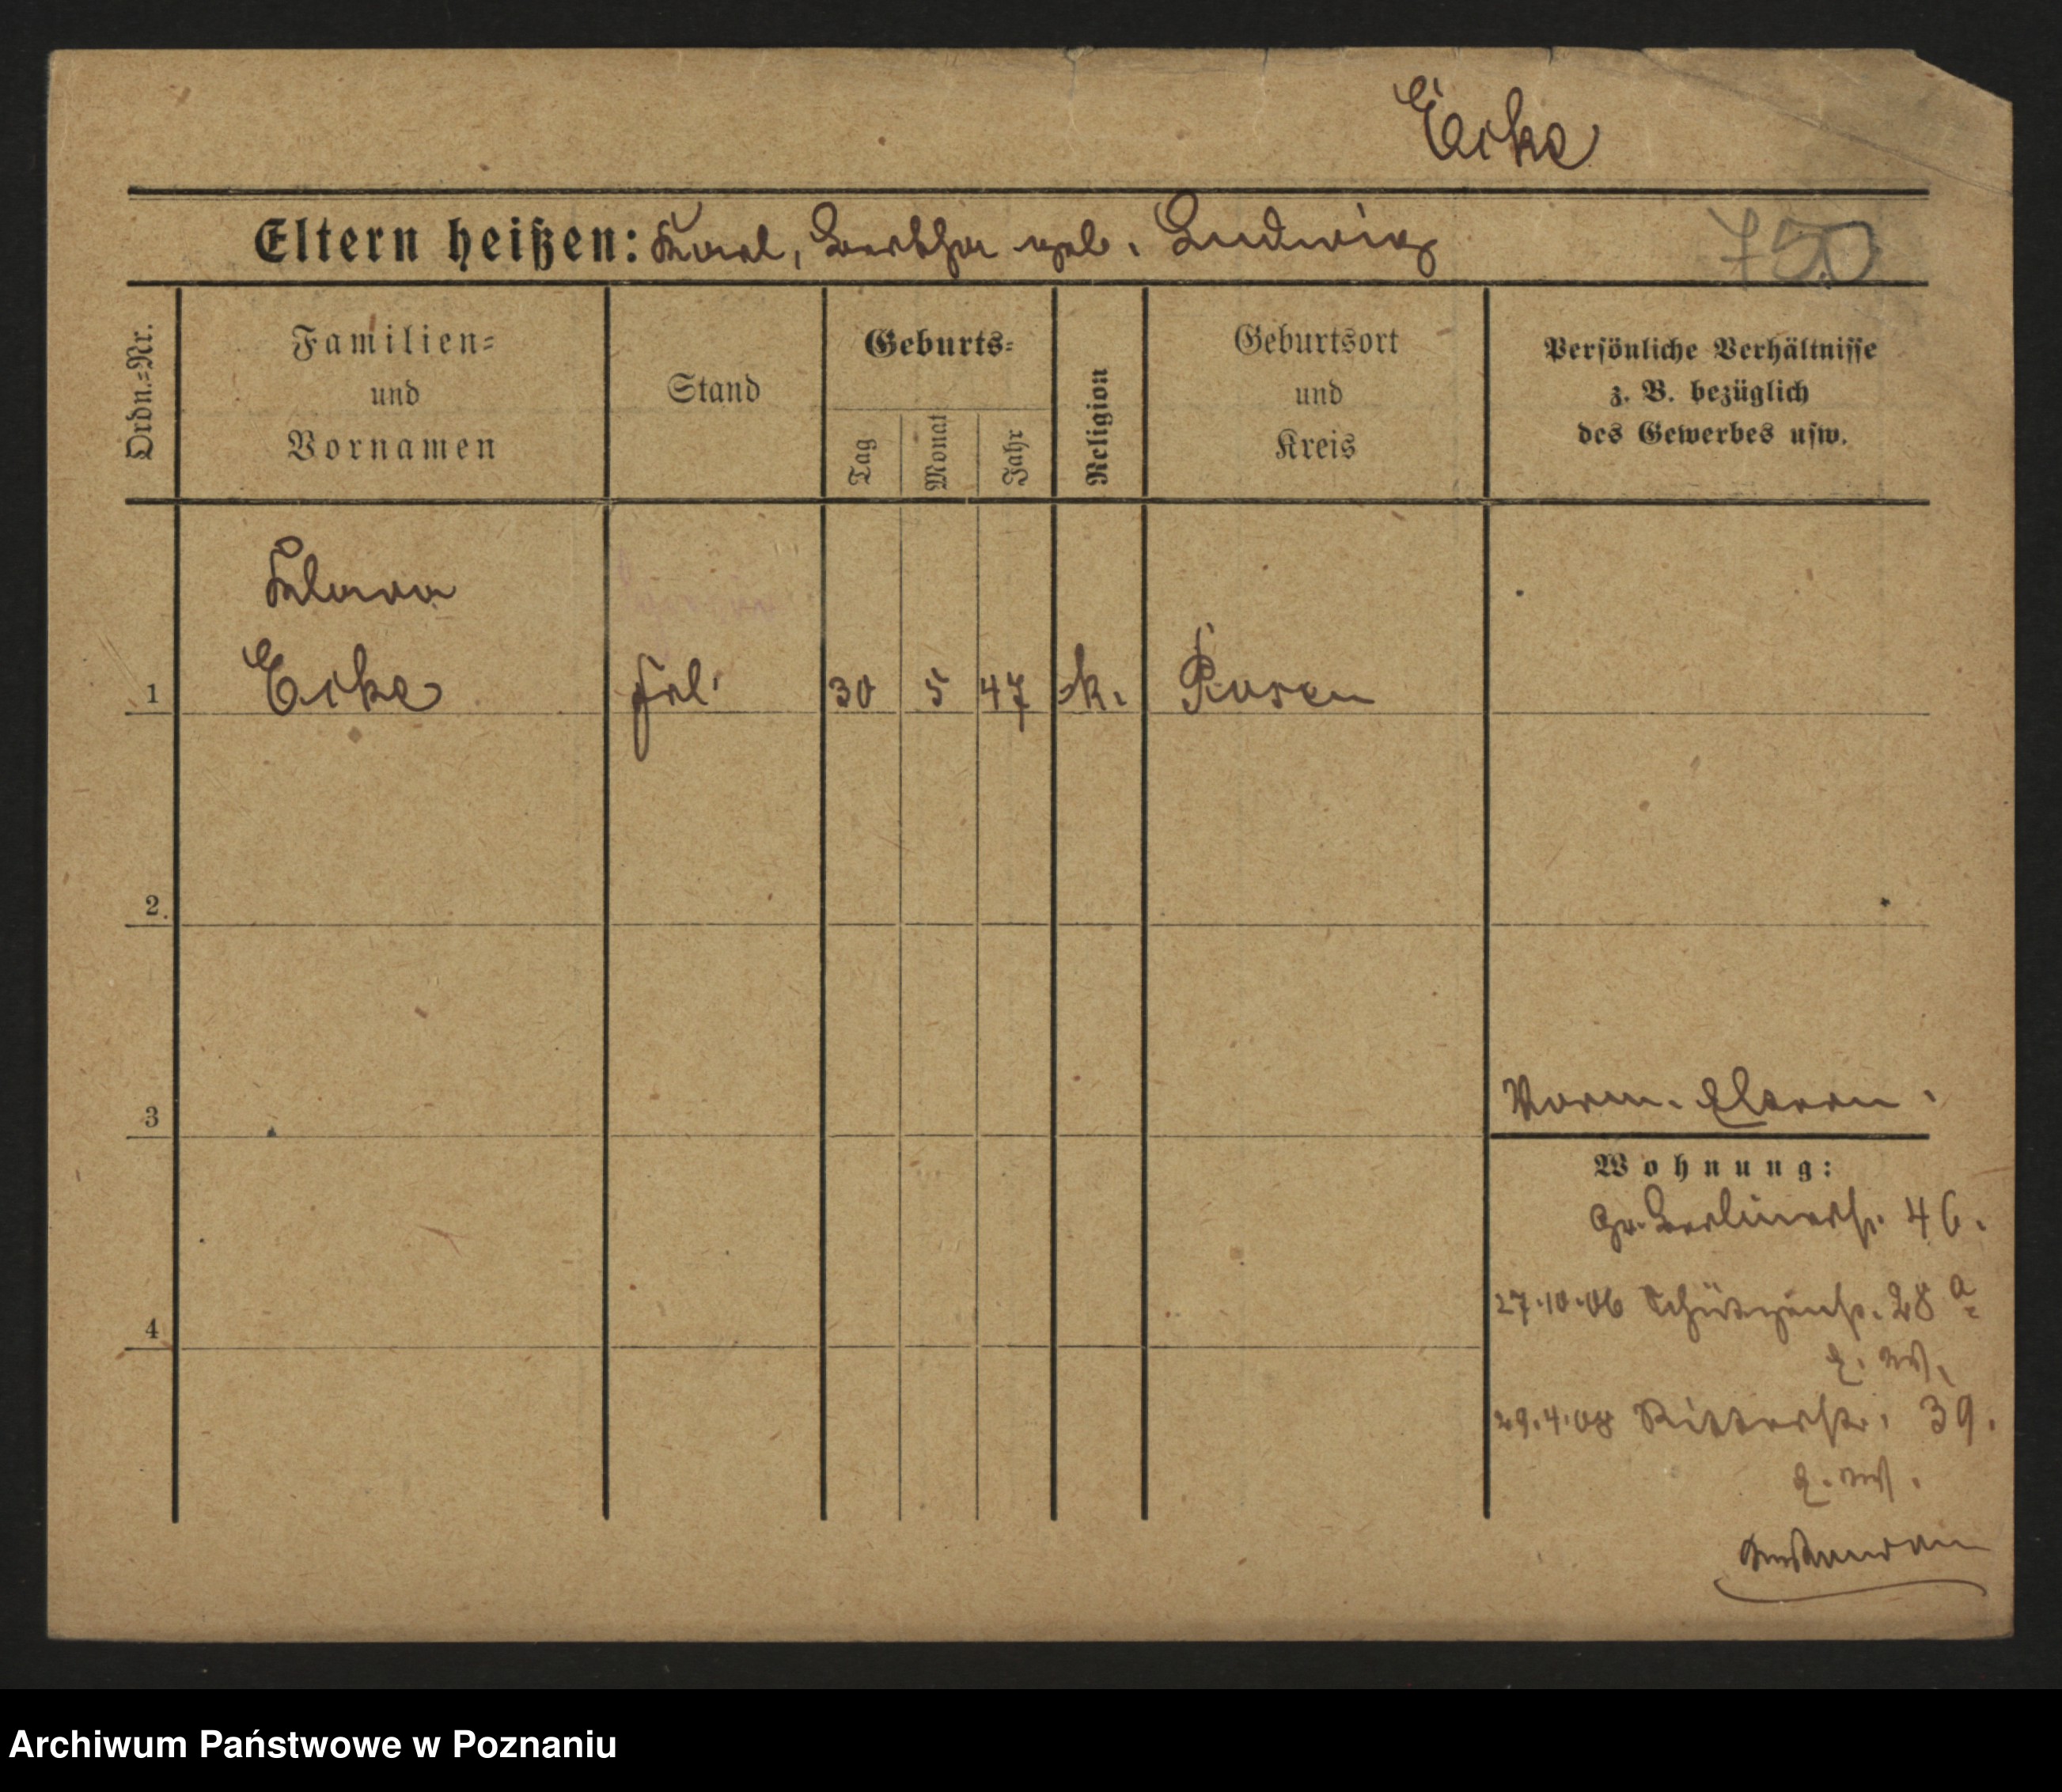 Ecke
Eltern heißen: Karl, Bertha geb. Ludwig
750
Ordn.=Nr.
Familien=
und
Vornamen
Stand
Geburts=
Tag
Monat
Jahr
Religion
Geburtsort
und
Kreis
Persönliche Verhältnisse
z. B. bezüglich
des Gewerbes usw.
Klara
1 Ecke Frl. 30 5 47 k. Posen
2.
3
Vorm. Eltern.
Wohnung:
Gr. Berlinerstr. 46.
27.10.06 Schützenstr. 28 a
4
29.4.08 Ritterstr. 39.
Archiwum Państwowe w Poznaniu